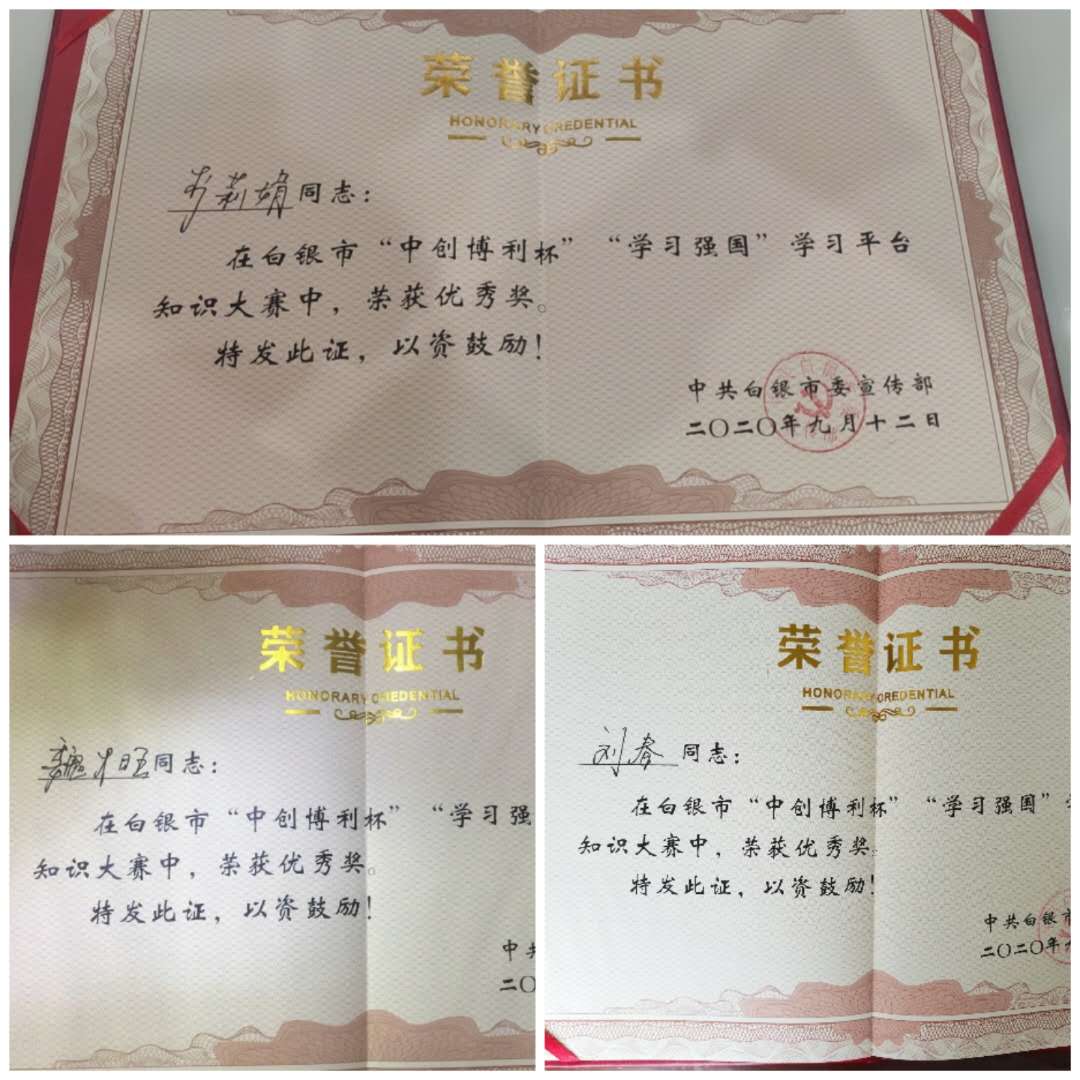 荣誉证书
HONORARY CREDENTIAL
莉娟同志：
在白银市“中创博利杯”“学习强国”学习平台
知识大赛中，荣获优秀奖。
特发此证，以资鼓励！
中共白银市委宣传部
二〇二〇年九月十二日
荣誉证书
HONORARY CREDENTIAL
魏旺同志：
在白银市“中创博利杯”“学习强
知识大赛中，荣获优秀奖。
特发此证，以资鼓励！
中共
二〇
荣誉证书
HONORARY CREDENTIAL
刘春 同志：
在白银市“中创博利杯”“学习强国”
知识大赛中，荣获优秀奖
特发此证，以资鼓励！
中共白银市
二〇二〇年